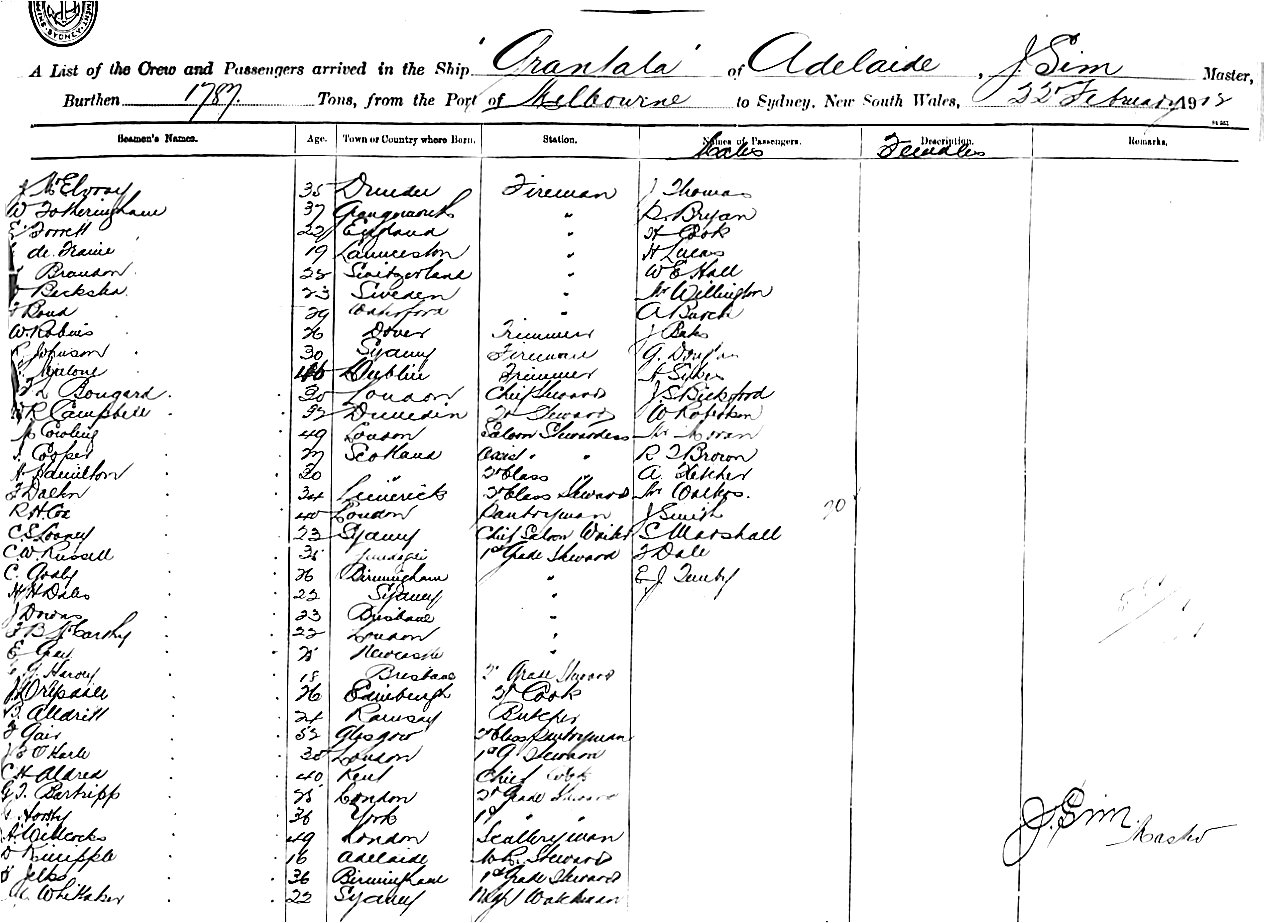 SYDNEY
A List of the Crew and Passengers arrived in the Ship "Grantala" of Adelaide, J. Sim Master,
Burthen 1787. Tons, from the Port of Melbourne to Sydney, New South Wales, 22 February 1912
Seamen's Names. Age. Town or Country where Born. Station. Names of Passengers. Description. Remarks.
Males Females
J McElvray 35 Dundee Fireman J Thomas
W Fotheringham 37 Grangemouth " Bryan
Forrett 22 England " H Cook
de Fraine 19 Launceston " H Lucas
Brandon 25 Switzerland " W E Hall
23 Sweden " Mr Willington
29 Waterford " A Burch
W. Robins 26 Dover Trimmer J
Johnson 30 Sydney Fireman G. Douglas
Malone 46 Dublin Trimmer Sykes
Bougard 30 London Chief Steward J S Bickford
W R Campbell 32 Dunedin 2nd Steward W
M Cowling 49 London Saloon Stewardess Mr Moran
Cooper 27 Scotland Assist " " R T Brown
Hamilton 30 " 2nd Class " A. Fletcher
34 Limerick 2nd Class Steward Mr
R H Cox 40 London Pantryman J Smith 20
C S Looney 23 Sydney Chief Saloon Waiter S Marshall
C. W. Russell 35 1st Grade Steward F Dale
C. Goaly 26 Birmingham " E. J.
H H Dales 22 Sydney "
J Downs 23 Brisbane "
F B McCarthy 22 London "
E Gray 25 Newcastle "
G Harvey 18 Brisbane 2nd Grade Steward
J Drysdale 26 Edinburgh 2nd Cook
Alldritt 24 Ramsay Butcher
F Gair 52 Glasgow 2nd Class Pantryman
O'Karle 30 London 1st G Steward
C H Aldred 40 Kent Chief Cook
G. T. Bartripp 25 London 2nd Grade Steward
36 York 1st " "
A. Willcocks 49 London Sculleryman
Knipple 16 Adelaide Steward
Jelks 36 Birmingham 1st Grade Steward
Whittaker 22 Sydney Night Watchman
J. Sim. Master